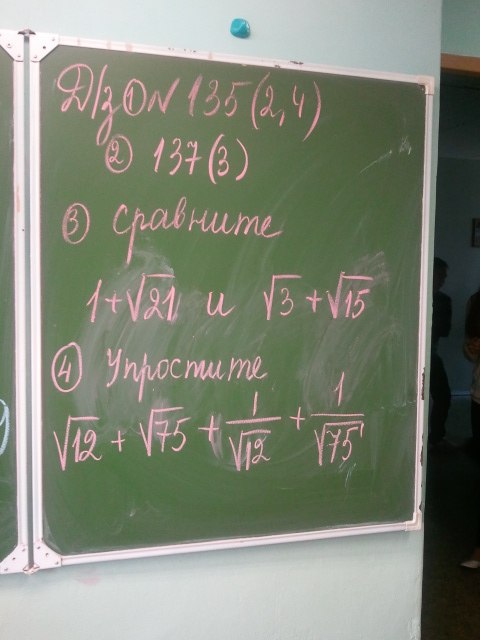 Д/з ① № 135(2,4)
② 137(3)
③ сравните
1+√21 и √3+√15
④ Упростите
√12 + √75 + 1/√12 + 1/√75